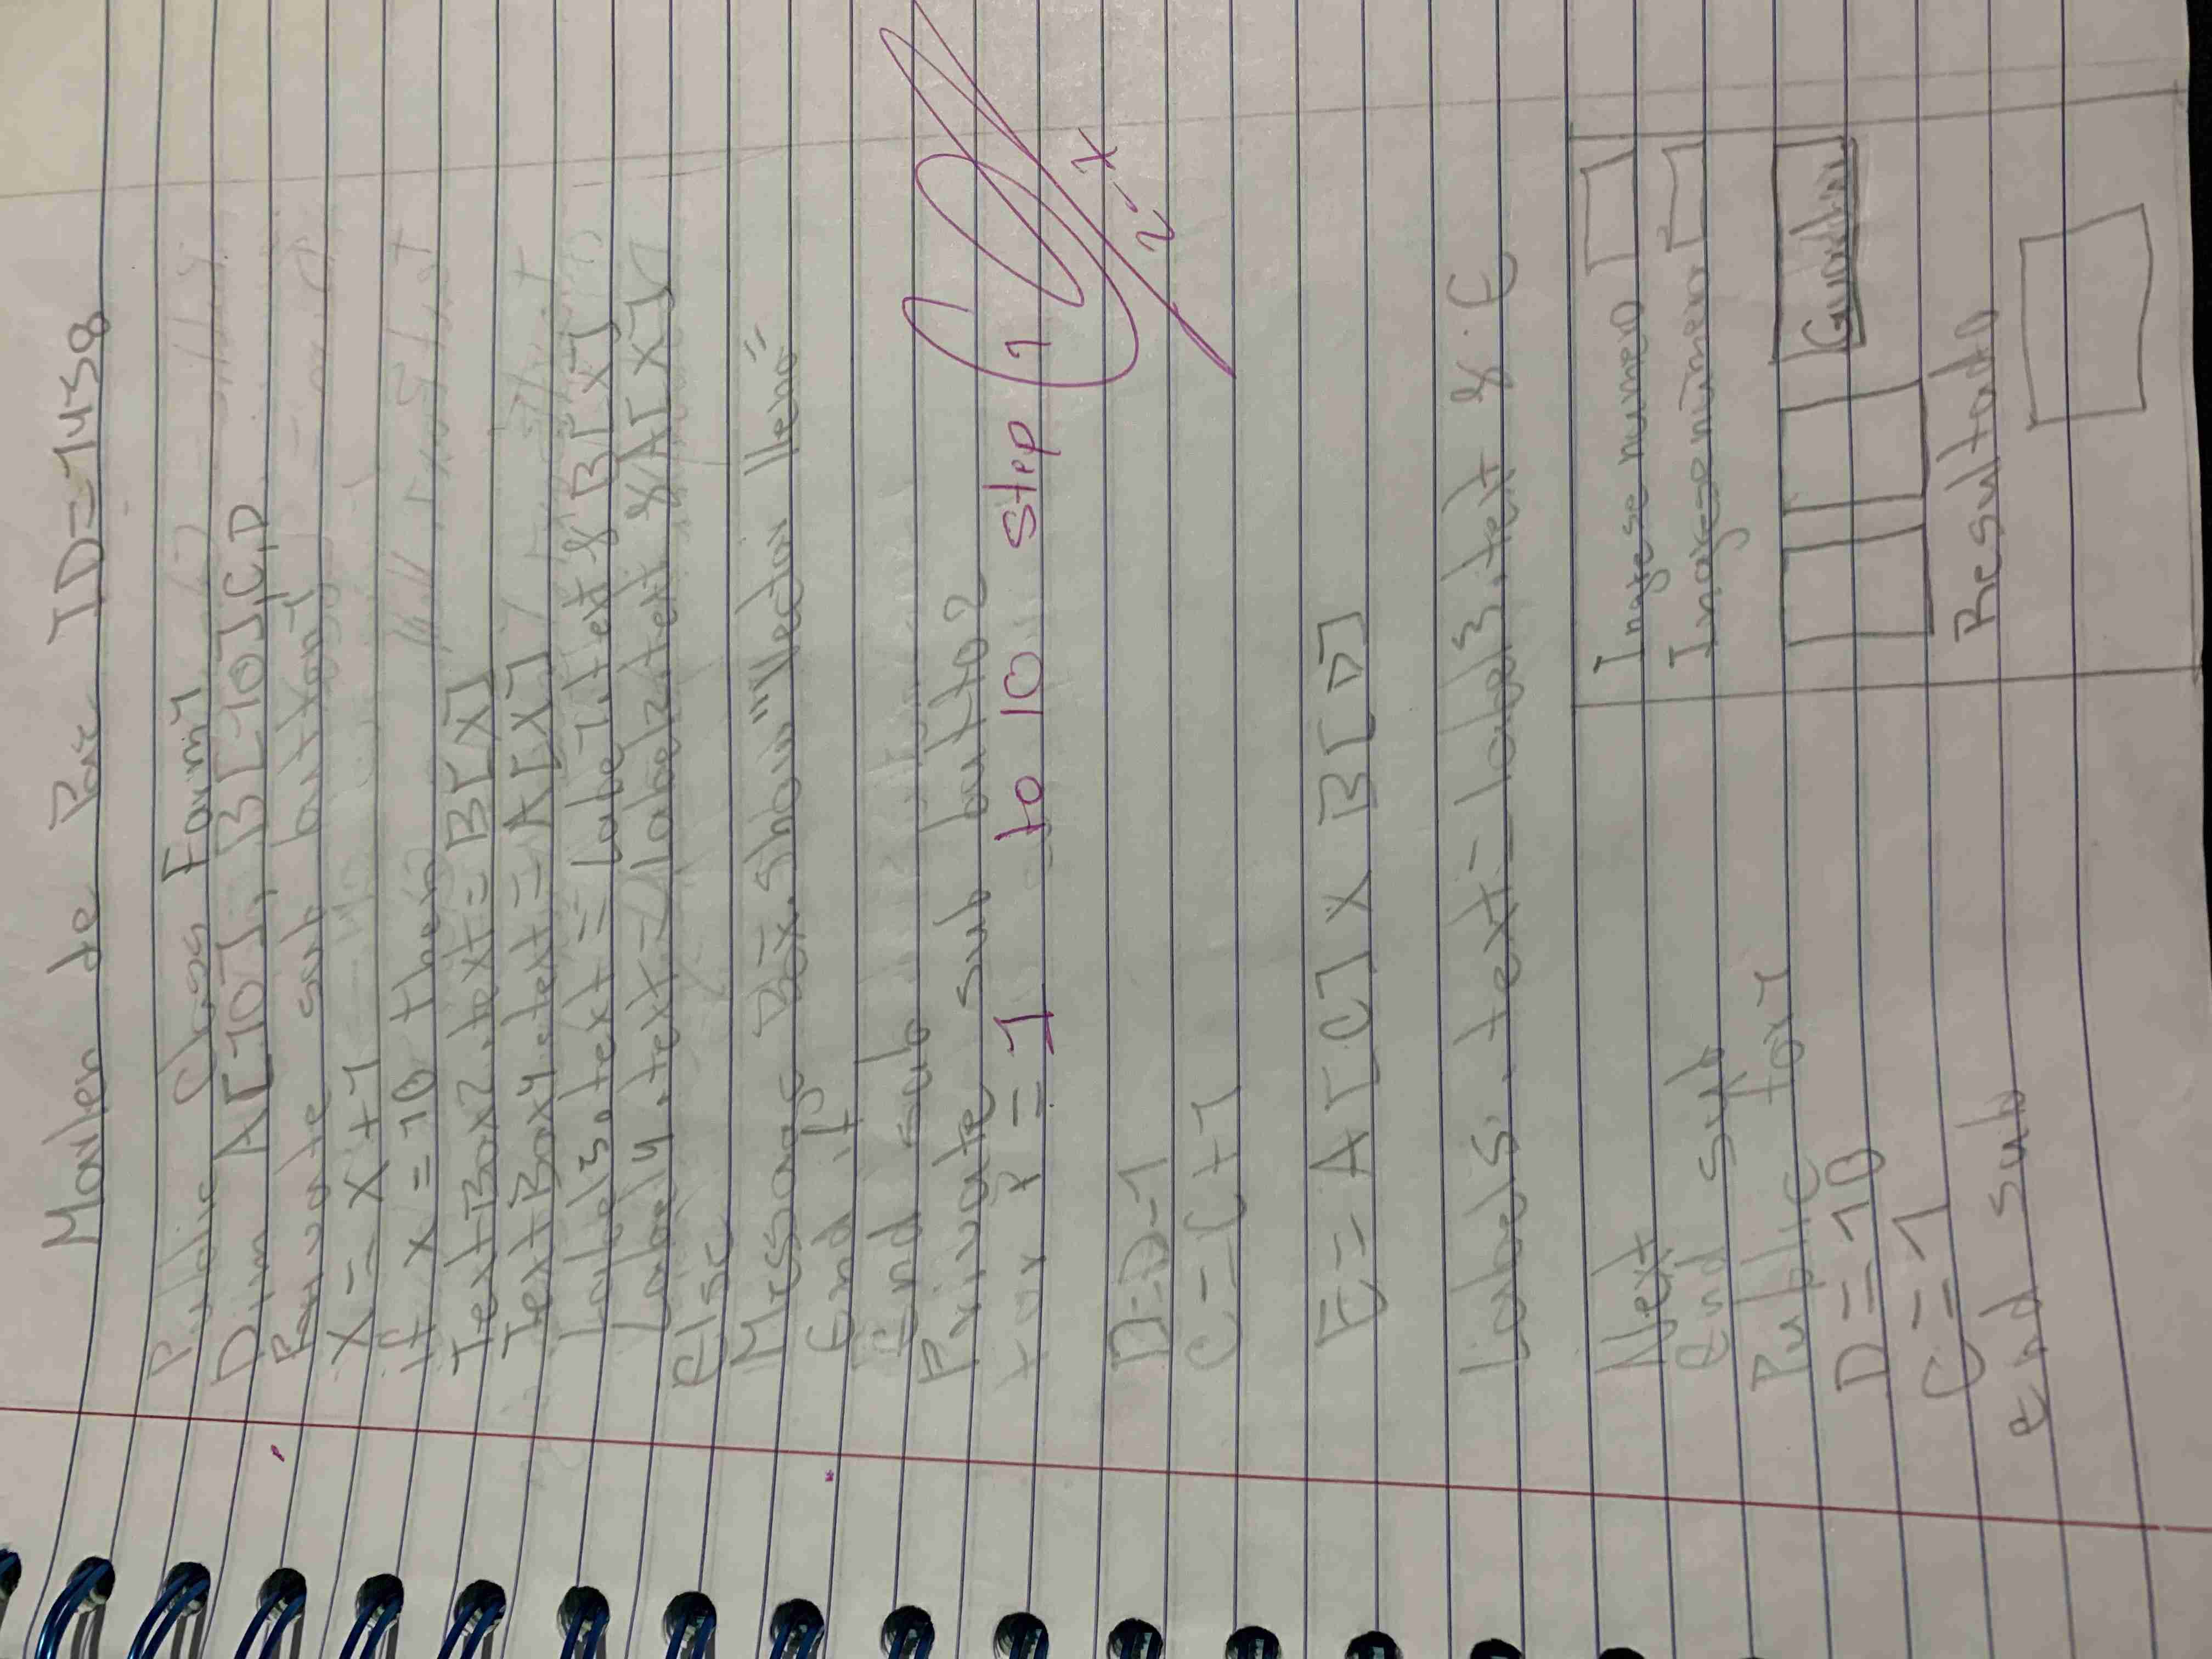 Marlen de Paz ID=1458
Public Class Form1
Dim A[10], B[10], C, D
Private sub button1
X = X+1
if x = 10 then
TextBox2.text = B[X]
TextBox4.text = A[X]
Label3.text = Label1.text & B[X]
Label4.text = label2.text & A[X]
else
Message Box.Show "Vector lleno"
End if
End sub
Private sub butto2
for x = 1 to 10 step 1
D=D-1
C=C+1
E= A[C] X B[D]
Label5.text=label3.text & E
Next
End sub
Public for1
D=10
C=1
End sub
Ingrese numero
Ingrese numero
Guardar
Resultado